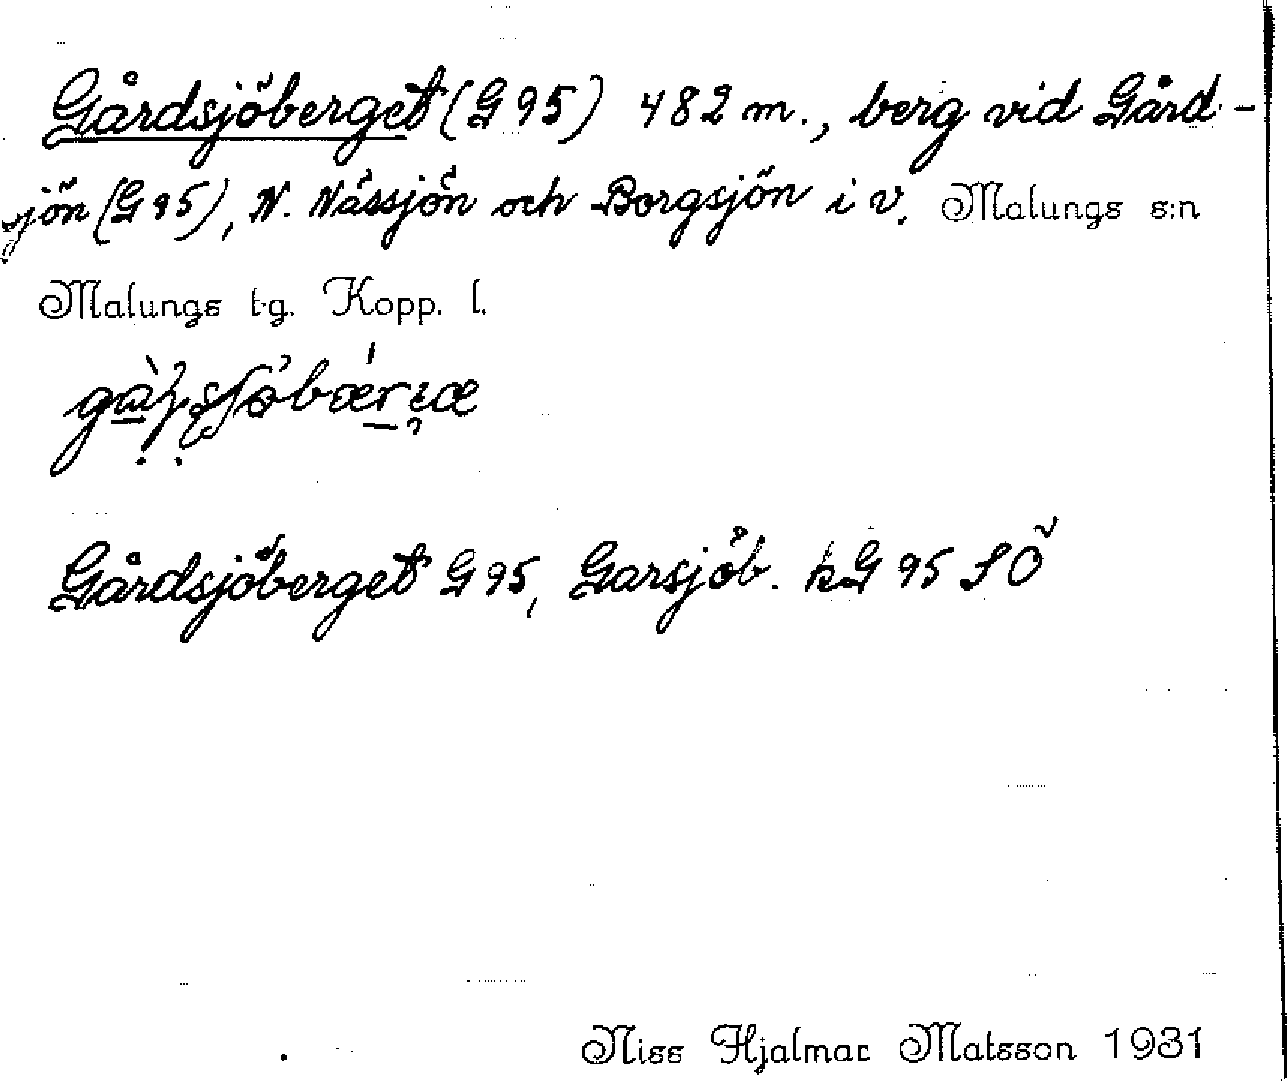 Gårdsjöberget (G 95) 482 m., berg vid Gård-
sjön (G 95), N. Nässjön och Borgsjön i v. Malungs s:n
Malungs t.g. Kopp. l.
Gårdsjöberget G 95, Garsjöb. kG 95 SÖ
Niss Hjalmar Matsson 1931